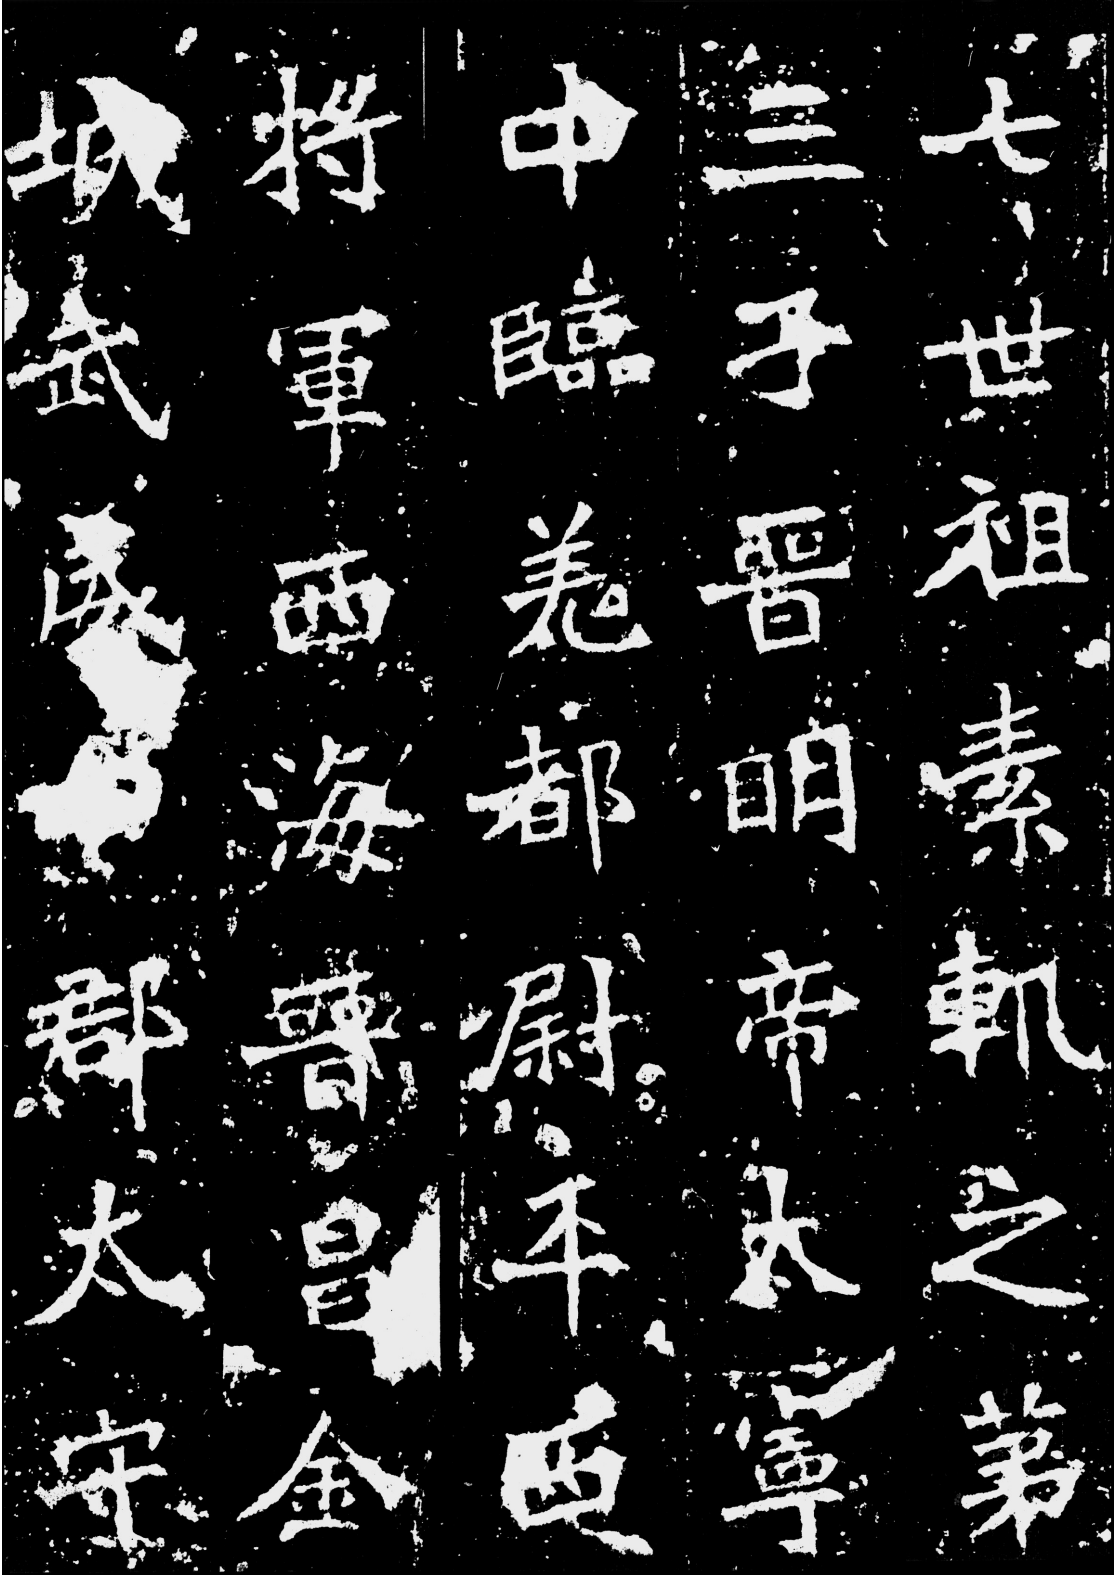 七世祖素軌之第
三子晉明帝太寧
中臨羌都尉平西
將軍西海晉昌金
城武威郡太守